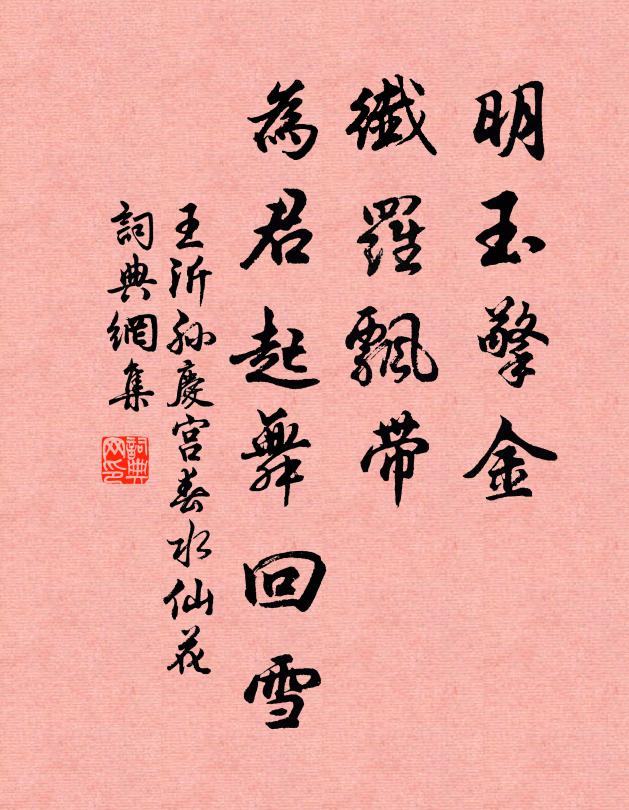 明玉擎金
纖羅飄帶
為君起舞回雪
王沂孙慶宫春水仙花
詞典網集
詞典网印